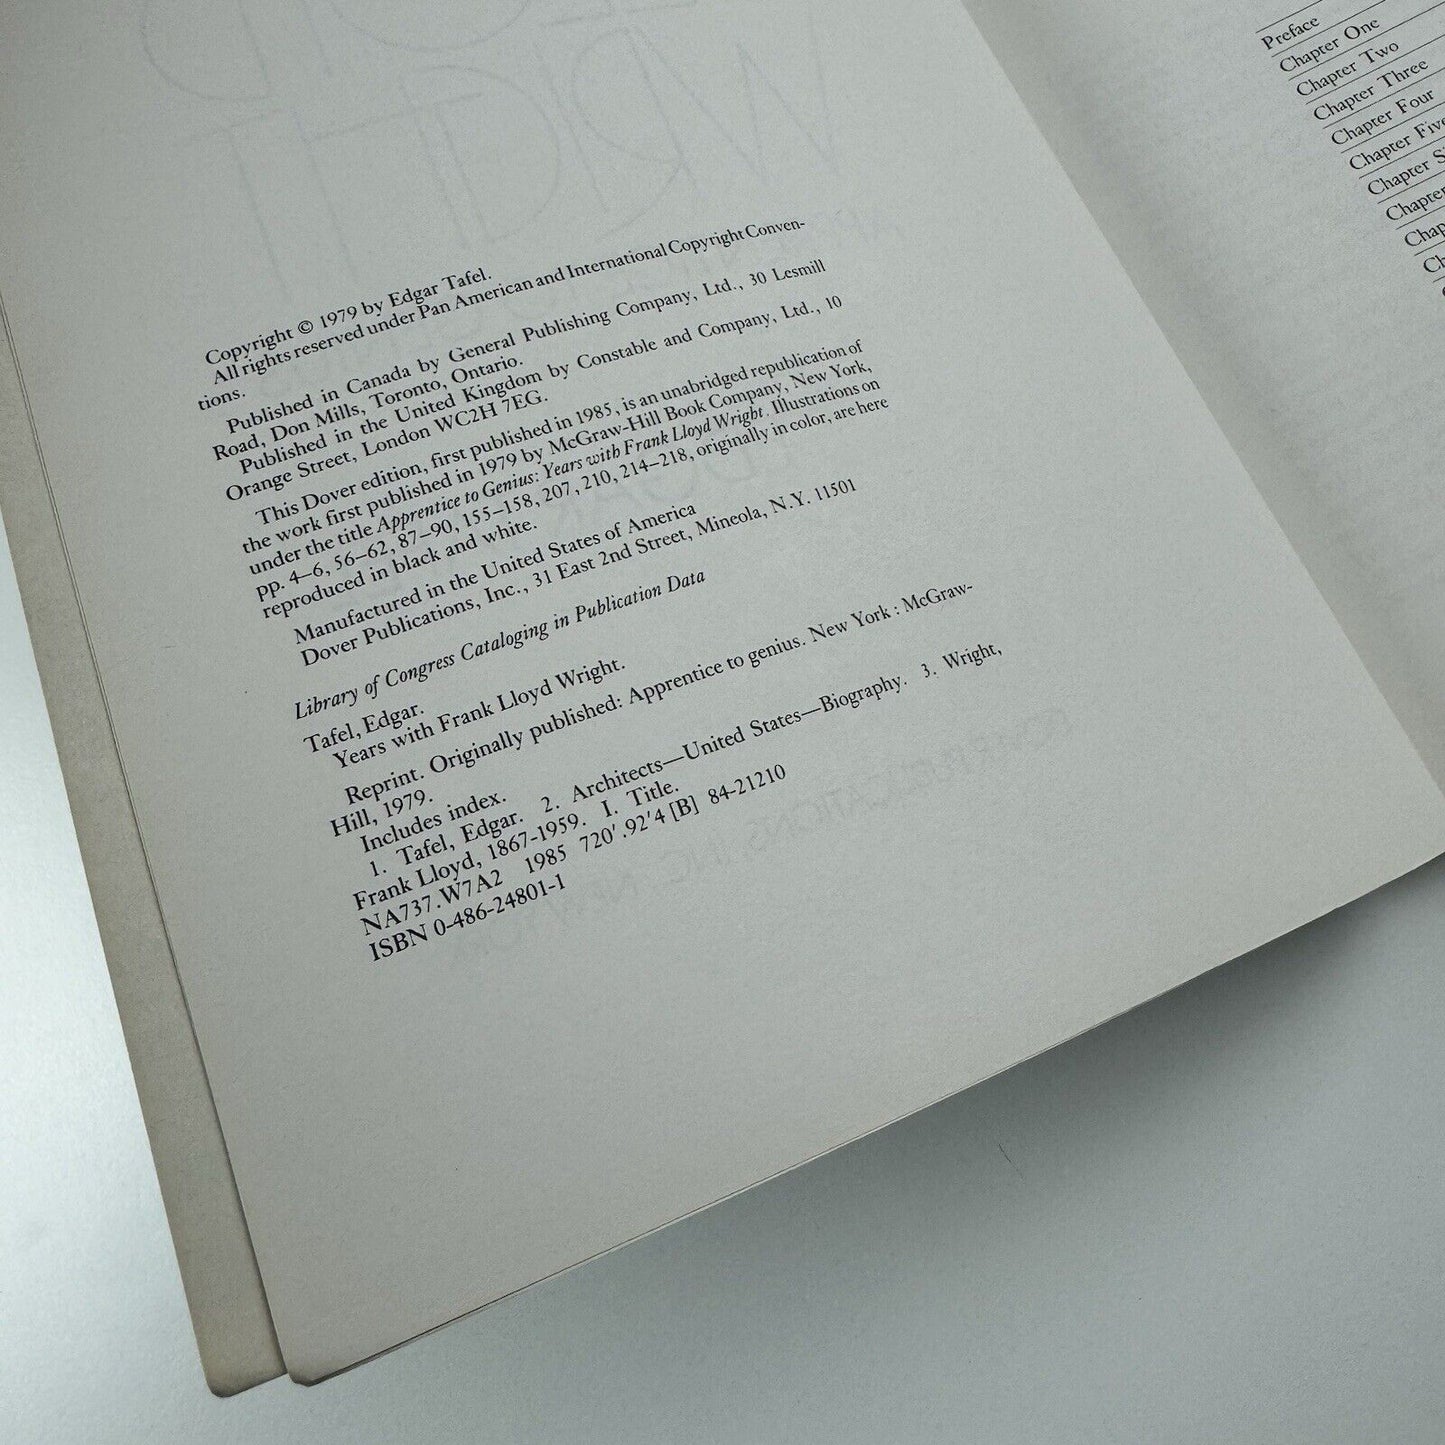 Copyright © 1979 by Edgar Tafel.
All rights reserved under Pan American and International Copyright Conven-
tions.
Published in Canada by General Publishing Company, Ltd., 30 Lesmill
Road, Don Mills, Toronto, Ontario.
Published in the United Kingdom by Constable and Company, Ltd., 10
Orange Street, London WC2H 7EG.
This Dover edition, first published in 1985, is an unabridged republication of
the work first published in 1979 by McGraw-Hill Book Company, New York,
under the title Apprentice to Genius: Years with Frank Lloyd Wright. Illustrations on
pp. 4–6, 56–62, 87–90, 155–158, 207, 210, 214–218, originally in color, are here
reproduced in black and white.
Manufactured in the United States of America
Dover Publications, Inc., 31 East 2nd Street, Mineola, N.Y. 11501
Library of Congress Cataloging in Publication Data
Tafel, Edgar.
Years with Frank Lloyd Wright.
Reprint. Originally published: Apprentice to genius. New York : McGraw-
Hill, 1979.
Includes index.
1. Tafel, Edgar. 2. Architects—United States—Biography. 3. Wright,
Frank Lloyd, 1867-1959. I. Title.
NA737.W7A2 1985 720′.92′4 [B] 84-21210
ISBN 0-486-24801-1
Preface
Chapter One
Chapter Two
Chapter Three
Chapter Four
Chapter Five
Chapter
Chapter